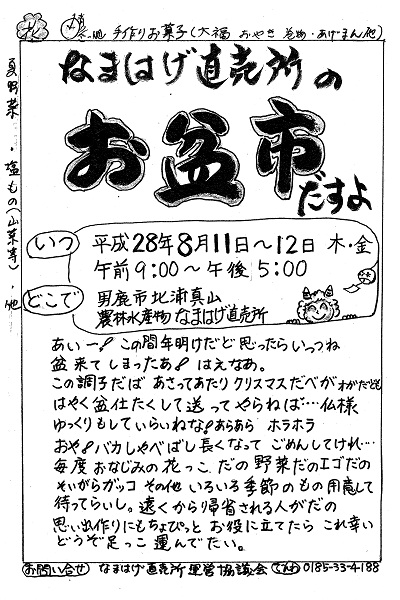 花 手作りお菓子(大福 おやき 巻物・あげまん他)
夏野菜・塩もの(山菜等)・他
なまはげ直売所の
お盆市
だすよ
いつ
平成28年8月11日~12日 木・金
午前9:00~午後5:00
どこで
男鹿市北浦真山
農林水産物なまはげ直売所
あぃー! この間年明けだど思ったらいっつね
盆来てしまったあ! はえなぁ。
この調子だば あさってあたり クリスマスだべが わがだども
はやく盆仕たくして送ってやらねば…仏様
ゆっくりもしていらいねな! あらあら ホラホラ
おや! バカしゃべばし長くなって ごめんしてけれ…
毎度おなじみの花っこ だの 野菜だのエゴだの
そいがらガッコ その他 いろいろ季節のもの用意して
待ってらぃし。遠くから帰省される人がだの
思い出作りにもちょぴっと お役に立てたら これ幸い
どうぞ足っこ 運んでたい。
お問い合せ なまはげ直売所運営協議会 でんわ 0185-33-4188